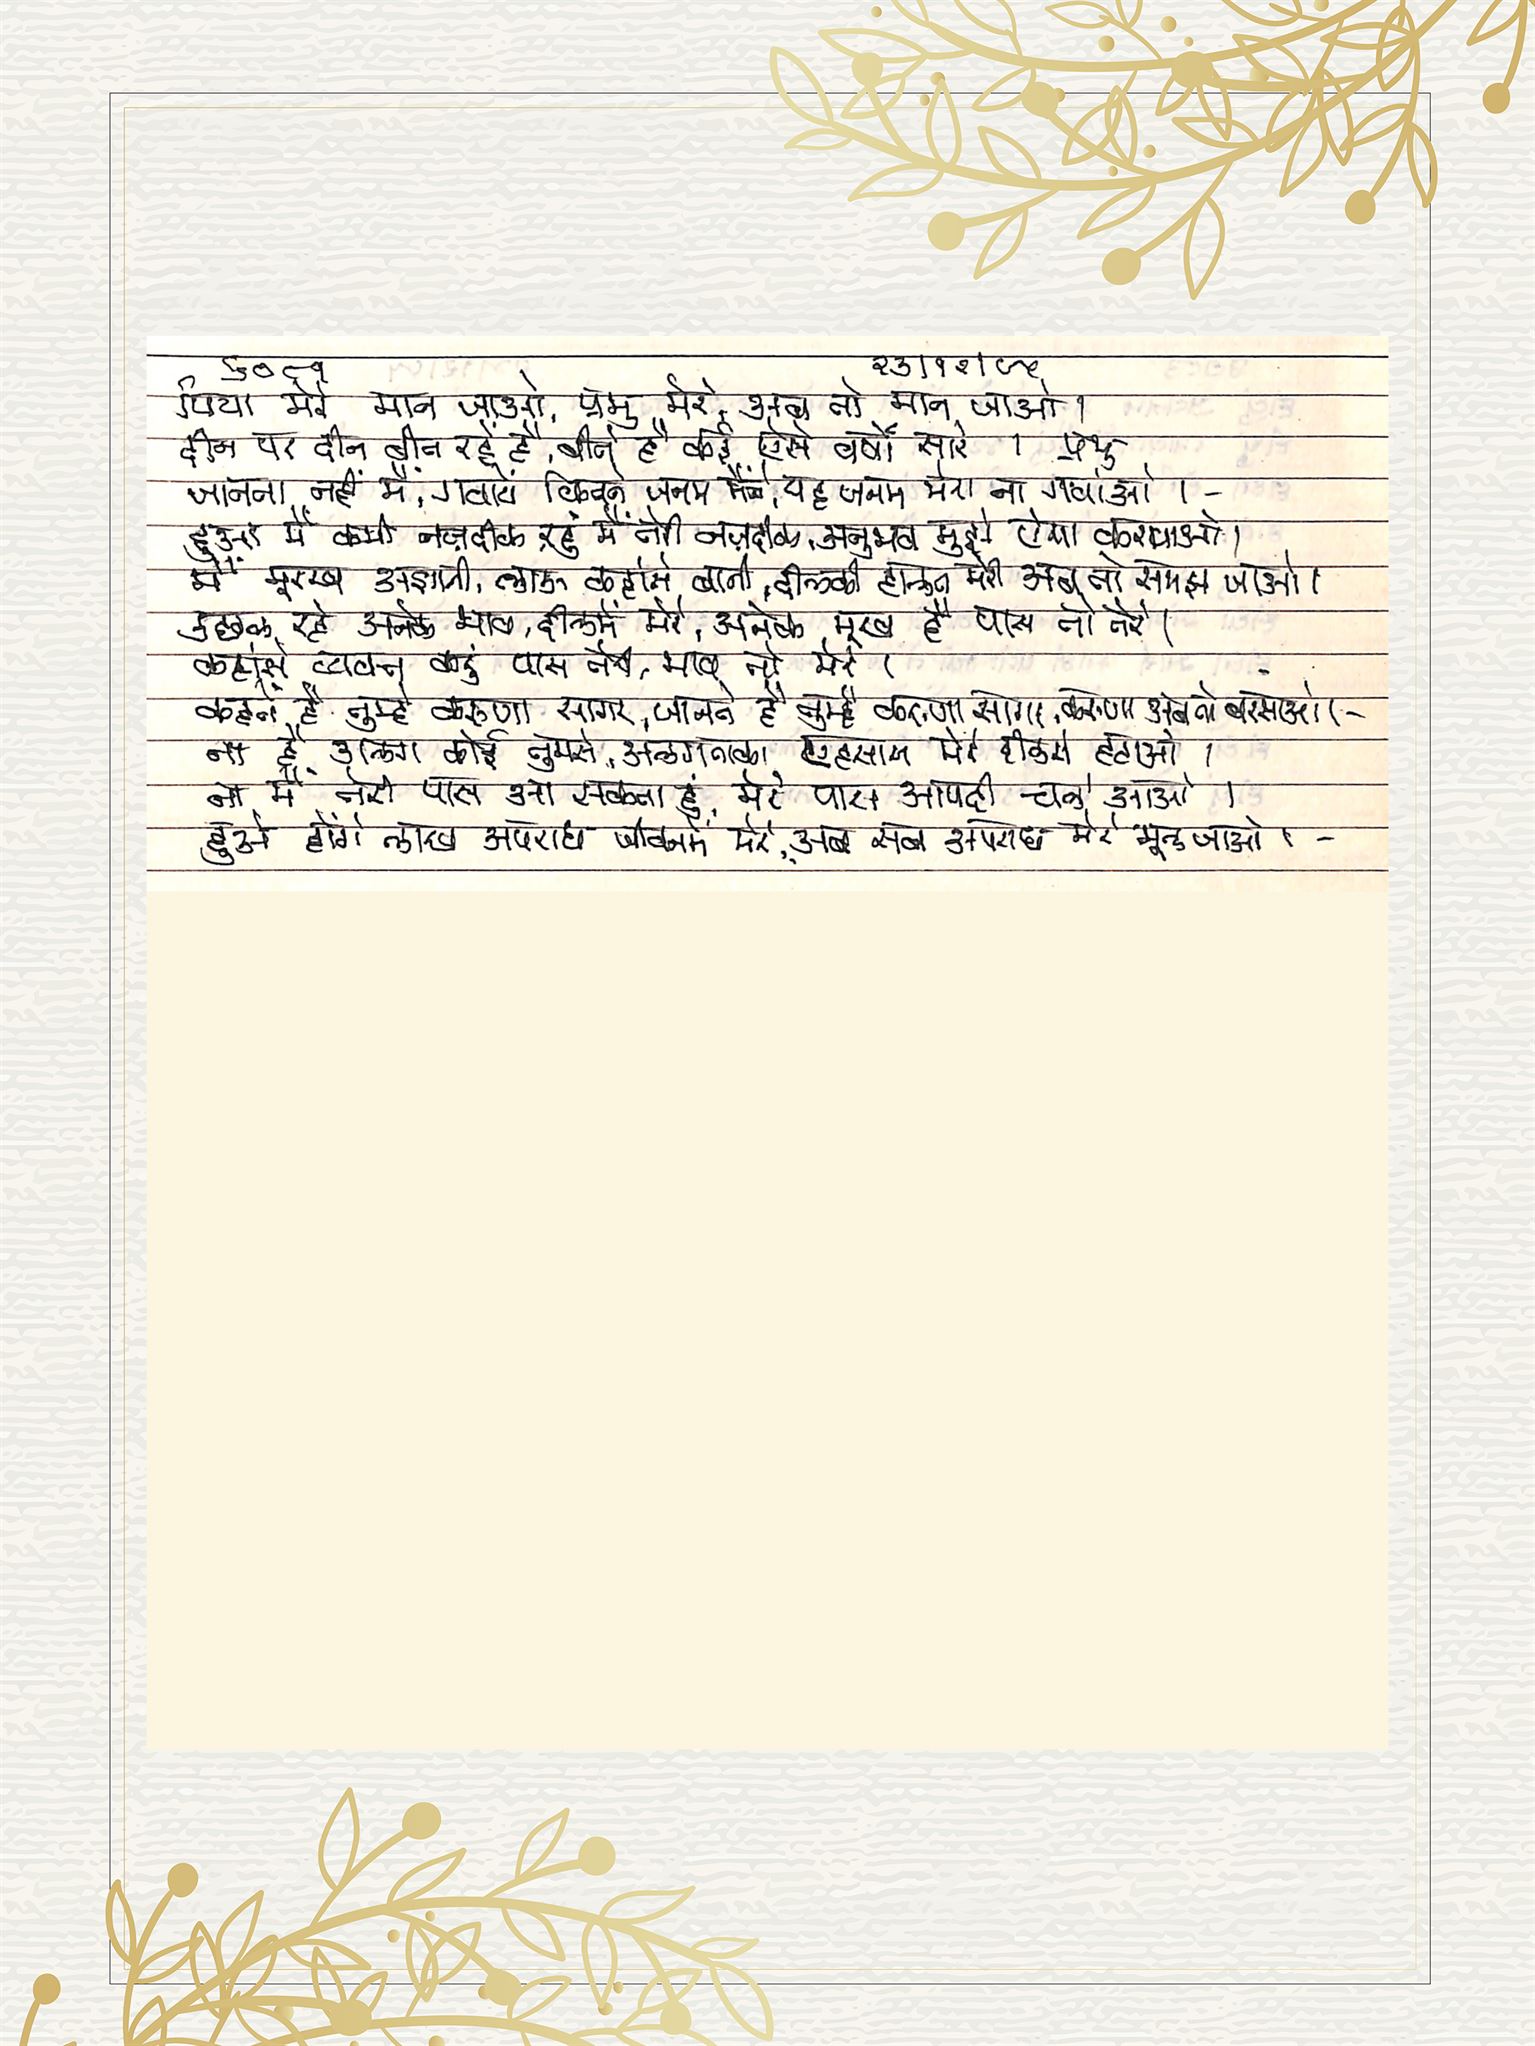 ५०८१ २३।१२।८५
पिया मेरे मान जाओ, प्रभु मेरे, अब तो मान जाओ।
दीन पर दीन बीत रहे है, बीते है कई ऐसे वर्षों सारे । प्रभु
जानता नहीं मैं, गवायें कितने जनम मैंने, यह जनम मेरा ना गवांओ । -
हुआ मैं कभी नज़दीक रहुं मैं तेरी नज़दीक, अनुभव मुझे ऐसा करवाओ।
मैं मूरख अज्ञानी, लाऊ कहांसे बानी, दीलकी हालत मेरी अब तो समझ जाओ।
उछल रहे अनेक भाव, दीलमें मेरे, अनेक मूख है पास तो तेरे।
कहांसे व्यक्त करुं पास तेरे, भाव तो मेरे ।
कहते है तुम्हे करुणा सागर, जानते है तुम्हें करुणा सागर, करुणा अब तो बरसाओ। -
ना है अलग कोई तुमसे, अलगताका एहसास मेरे दीलसे हटाओ ।
ना मैं तेरी पास आ सकता हुं, मेरे पास आपही चले आओ ।
हुओ होंगे लाख अपराध जीवनमें मेरे, अब सब अपराध मेरे भूल जाओ । -